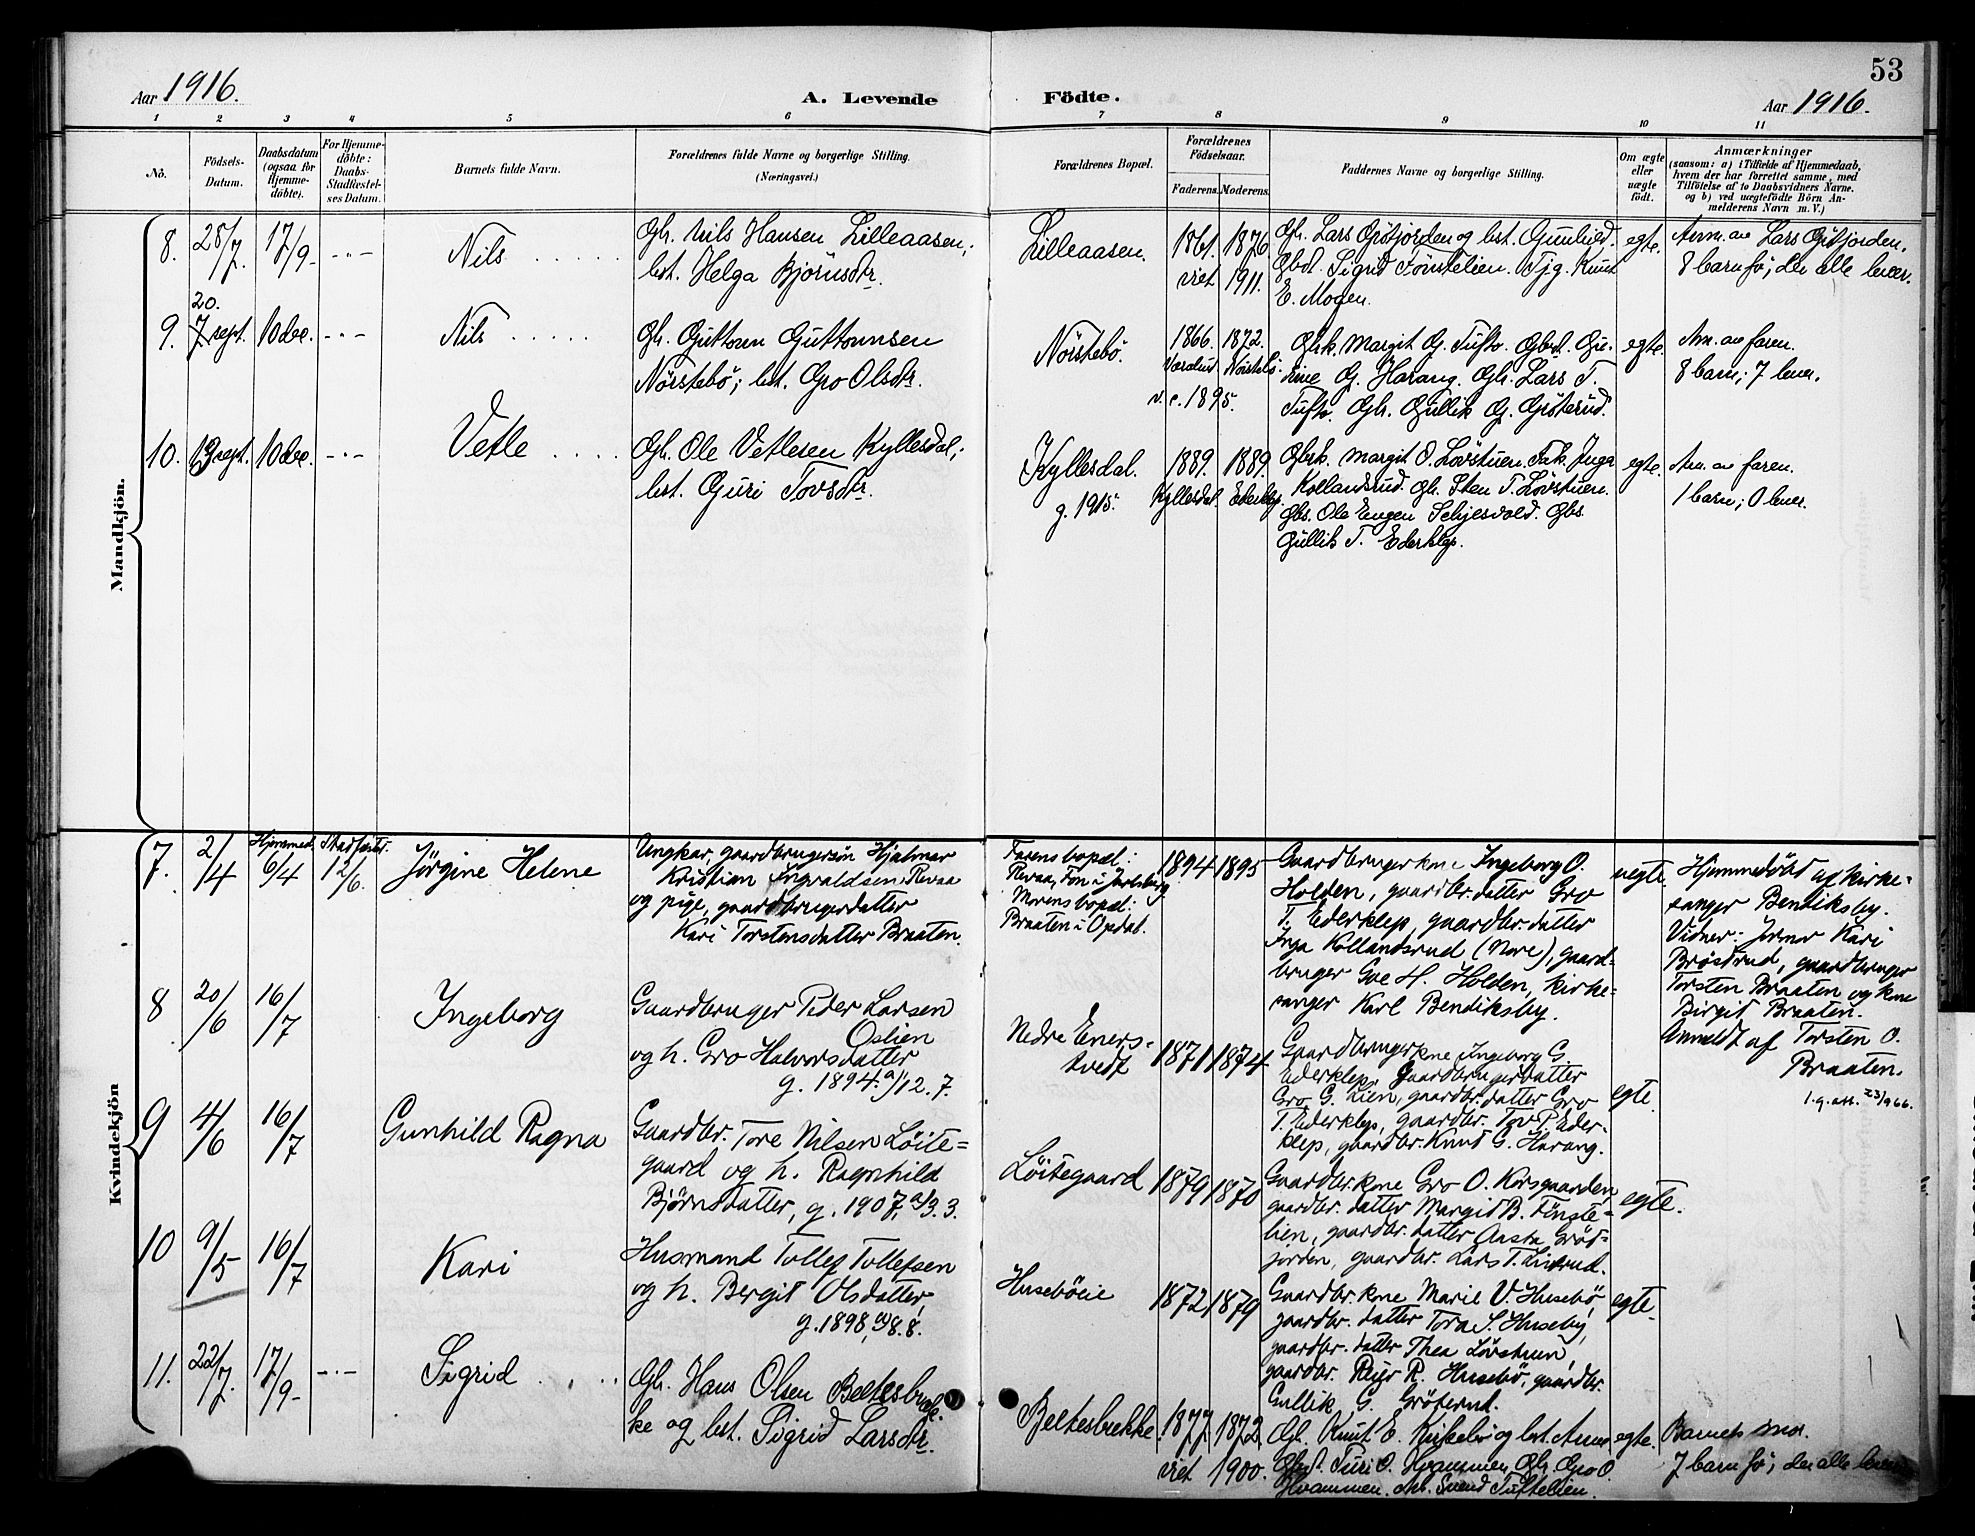 53
Aar 1916.
A. Levende
Födte.
Aar 1916.
1 2 3 4 5 6 7 8 9 10 11
No.
Födsels-
Datum.
Daabsdatum
(ogsaa for
Hjemme-
döbte).
For Hjemme-
döbte:
Daabs-
Stadfæstel-
ses Datum.
Barnets fulde Navn.
Forældrenes fulde Navne og borgerlige Stilling.
(Næringsvei.)
Forældrenes Bopæl.
Forældrenes
Födselsaar.
Faderens.
Moderens.
Faddernes Navne og borgerlige Stilling.
Om ægte
eller
uægte
födt.
Anmærkninger
(saasom: a) i Tilfælde af Hjemmedaab,
hvem der har forrettet samme, med
Tilföielse af to Daabsvidners Navne.
og b) ved uægtefödte Börn An-
melderens Navn m. V.)
Mandkjön.
8. 28/7. 17/9. -"- Nils
Gbr. Nils Hansen Lilleaasen;
hst. Helga Björnsdtr.
Lilleaasen.
1861. 1876
viet 1911.
Gbr. Lars Grötjorden og hst. Gunhild.
Gbdt. Sigrid Fönstelien. Tjg. Knut
E. Mogen.
egte.
Anm. av Lars Grötjorden.
8 barn fö; der alle lever.
9. 20. 7 sept. 10 dec. -"- Nils
Gbr. Guttorm Guttormsen
Nörstebö; hst. Gro Olsdtr.
Nörstebö.
1866. 1872.
Nörstebö.
v. e. 1895.
Gbrk. Margit G. Tufto. Gbdt. Gu-
rine G. Harang. Gbr. Lars T.
Tufto. Gbr. Gullik G. Gröterud.
egte.
Anm. av faren.
8 barn; 7 lever.
10. 13 sept. 10 dec. -"- Vetle
Gbr. Ole Vetlesen Kyllesdal;
hst. Guri Tovsdtr.
Kyllesdal.
g. 1915.
1889. 1889.
Kyllesdal. Ederklep.
Gbrk. Margit O. Lövstuen. Frk. Inga
Kollandsrud. Gbr. Sten T. Lövstuen.
Gbs. Ole Engen Schjesvold. Gbs.
Gullik T. Ederklep.
egte.
Anm. av faren.
1 barn; 0 lever.
Kvindekjön
7. 2/4 Hjemmed. 6/4 Stadfæstet. 12/6. Jörgine Helene
Ungkar, gaardbrugersön Hjalmar
Kristian Ingvaldsen Revaa
og pige, gaardbrugerdatter
Kari Torstensdatter Braaten.
Farens bopæl:
Revaa, Fon i Jarlsberg
Morens bopæl:
Braaten i Opdal.
1894 1895
Gaardbrugerkone Ingeborg O.
Holden, gaardbr. datter Gro
T. Ederklep, gaardbr. datter
Inga Kollandsrud (Nore), gaard-
bruger Gve H. Holden, kirke-
sanger Karl Bendiksby.
uegte.
Hjemmedöbt af kirke-
sanger Bendiksby.
Vidner: Jormor Kari
Bröstrud, gaardbruger
Torsten Braaten og kone
Birgit Braaten.
Anmeldt af Torsten O.
Braaten.
l. g. att. 23/9 66.
8 20/6 16/7 Ingeborg
Gaardbruger Peder Larsen
Oslien
og h. Gro Halvorsdatter
g. 1894. a/ 12. 7.
Nedre Eners-
tvedt
1871 1874
Gaardbrugerkone Ingeborg G.
Ederklep, gaardbrugerdatter
Gro G. Lien, gaardbr. datter Gro
T. Ederklep, gaardbr. Tov P. Eder-
klep, gaardbr. Knut G. Harang.
egte.
9 4/6 16/7 Gunhild Ragna
Gaardbr. Tore Nilsen Löite-
gaard og h. Ragnhild
Björnsdatter, g. 1907, a/ 3. 3.
Löitegaard
1879 1870
Gaardbr. kone Gro O. Korsgaarden,
gaardbr. datter Margit B. Fönste-
lien, gaardbr. datter Aasta Gröt-
jorden, gaardbr. Lars T. Liverud.
egte.
10 9/5 16/7 Kari
Husmand Tollef Tollefsen
og h. Bergit Olsdatter,
g. 1898, a/ 8. 8.
Huseböeie
1872 1879
Gaardbr. kone Marie V. Husebö,
gaardbr. datter Tora S. Huseby,
gaardbr. datter Thea Lövstuen,
gaardbr. R. Husebö, gaardbr.
Gullik G. Gröterud.
egte.
11. 22/7. 17/9. -"- Sigrid
Gbr. Hans Olsen Beltesbræk-
ke og hst. Sigrid Larsdtr.
Beltesbrekke.
1877. 1872.
viet 1900.
Gbr. Knut E. og hst. Anne
Gbdt. Turi O. Hvammen. Gbr. Gro O.
Hvammen. Svend Tuftelien.
egte.
Barnets mor.
7 barn fö; der alle lever.